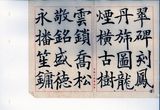 翠碑刻鳳
丹圖龍
煙橫古樹
雲鎖喬松
敬銘盛德
永播笙鏞